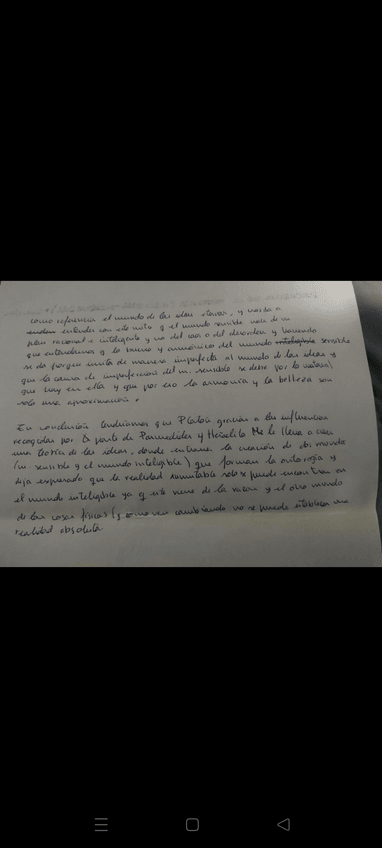 como referencia el mundo de las ideas eternas, y vuelve a
entender con este mito q el mundo sensible nace de un
plan racional e inteligente y no del caos o del desorden y haciendo
que entendamos q lo bueno y armónico del mundo inteligible sensible
se da porque imita de manera imperfecta al mundo de las ideas y
que la causa de imperfección del m. sensible se debe por la materia
que hay en ella y que por eso la armonía y la belleza son
solo una aproximación.
En conclusión tendríamos que Platón gracias a las influencias
recogidas por parte de Parménides y Heráclito le lleva a crear
una teoría de las ideas, donde entrane la creación de dos mundos
(m. sensible y el mundo inteligible) que forman la ontología y
deja expresado que la realidad inmutable solo se puede encontrar en
el mundo inteligible ya q este viene de la razón y el otro mundo
de las cosas físicas (y como van cambiando no se puede establecer una
realidad absoluta.